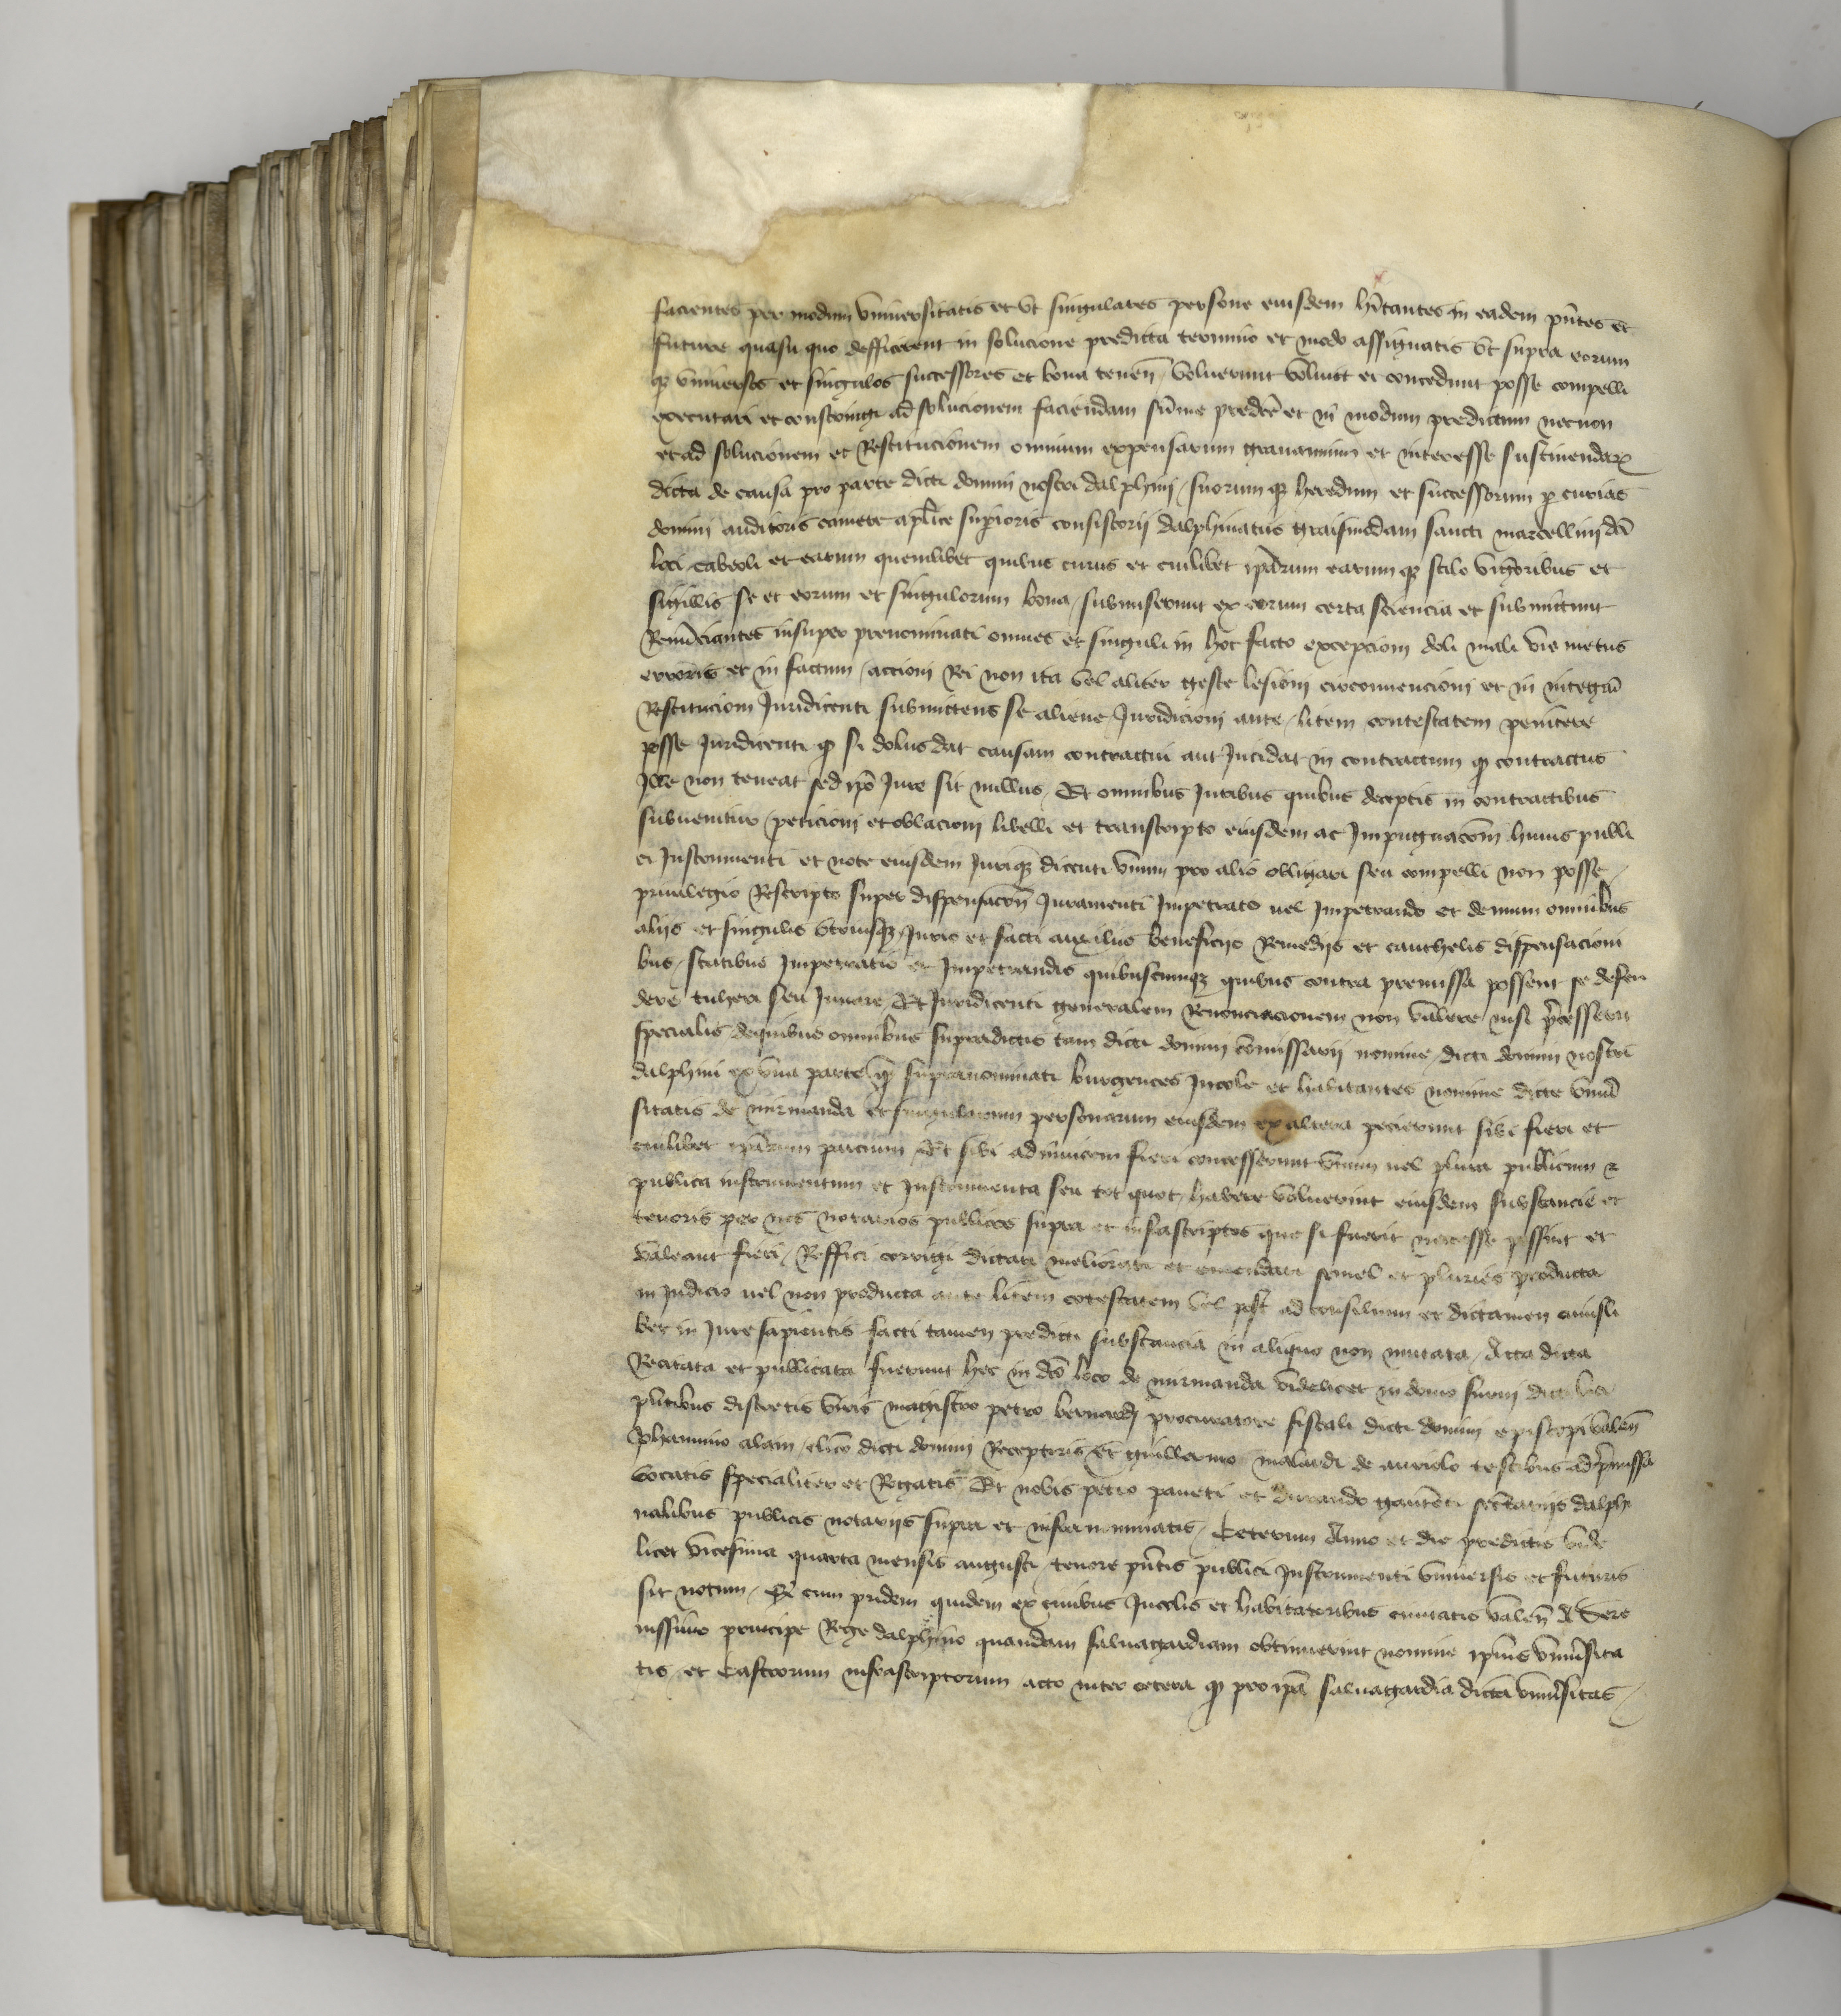 facientes per modum vniuersitatis et vt singulares persone eiusdem hītantes in eadem pn̄tes et
future quasu quo defficerent in solucione predicta termino et modo assignatis vt supra eorum
qȝ vniuersos et singulos successores et bona teneri voluerunt volunt et concedunt posse compelli
executari et constringi ad solucionem faciendam sūme predcē et in modum predictum necnon
et ad solucionem et Restitucionem omnium expensarum grauaminum et interesse sustinendaꝝ
dicta de causa pro parte dicti domini nostri dalphinj / suorum qȝ heredum et successorum ꝑ curias
domini auditoris camere aplīce suꝑioris consistorij dalphinatus graisiuodani sancti marcellinj dcī
loci cabeoli et earum quemlibet quibus curiis et cuilibet ip̄arum earum qȝ stilo vigoribus et
sigillis se et eorum et singulorum bona / submiserunt ex eorum certa sciencia et submittunt
Renūciantes insuper prenominati omnes et singuli in hoc facto excepcioni doli mali vis metus
erroris et in factum / accioni Rei non ita vel aliter geste lesioni circonuencioni et in integrū
Restitucioni Juridicenti submittens se aliene Juridicioni ante / litem contestatem penitere
posse Juridicenti qȝ si dolus dat causam contractui aut Jncidat in contractum qȝ contractus
Jlle non teneat sed ip̄o Jure sit nullus / Et omnibus Juribus quibus deceptis in contractibus
subuenitur / peticioni et oblacioni libelli et transcripto eiusdem ac Jmpugnacōni huius publi
ci Jnstrumenti et note eiusdem Juriqȝ dicenti vnum pro alio obligari seu compelli non posse /
priuilegio Rescripto super dispensacōn Juramenti Jmpetrato uel Jmpetrando et demum omnibus
alijs et singulis vtriusqȝ Juris et facti auxiliis beneficijs Remedijs et cauthelis dispensacioni
bus / statibus Jmpetratis et Jmpetrandis quibuscumqȝ quibus contra premissa possent se defen
dere tuheri seu Juuare Et Juridicenti generalem Renonciacionem non valere nisi p̄cesserit
specialis dequibus omnibus supradictis tam dicti domini cōmissarij nomine / dicti domini nostri
dalphini ex vna parte qȝ supranominati burgences Jncole et habitantes nomine dicte vniūr
sitatis de mirmanda et singularum personarum eiusdem ex altera pecierunt sibi fieri et
cuilibet ip̄arum parcium / Et sibi adinuicem fieri concesserunt vnum uel plura publicum &
publica instrumentum et Jnstrumenta seu tot quot habere voluerint eiusdem substancie et
tenoris per nos notarios publicos supra et infrascriptos que si fuerit necesse possint et
valeant fieri / Reffici corrigi dictari meliorari et emendari semel et pluries producta
in Judicio uel non producta ante litem cotestatem vel post ad consilium et dictamen cuiusli
bet in Jure sapientis facti tamen predicti substancia in aliquo non mutata / Acta dicta
Recitata et publicata fuerunt hec in dcō loco de mirmanda videlicet in domo furni dicti loci
pn̄tibus discretis viris magistro petro bernardj procuratore fiscali dicti domini episcopi valen̄
Johannino alam / clīco dicti domini Receptoris et guillermo malardi de auriolo testibus ad p̄missa
vocatis specialiter et Rogatis Et nobis petro paneti et durando gauteri secr̄tarijs dalphi
nalibus publicis notarijs supra et infra nominatis / Ceterum Anno et die predictis vide
licet vicesima quarta mensis augusti / tenore pn̄tis publici Jnstrumenti vniuersis et futuris
sit notum / Qd̄ cum pridem quidem ex ciuibus Jncolis et habitatoribus ciuitatis valen̄ A Sere
nissimo principe Rege dalphino quandam saluagardiam obtinuerint nomine ip̄ius vniūsita
tis et Castrorum infrascriptorum acto inter cetera qȝ pro ip̄a saluagardia dicta vniūsitas /